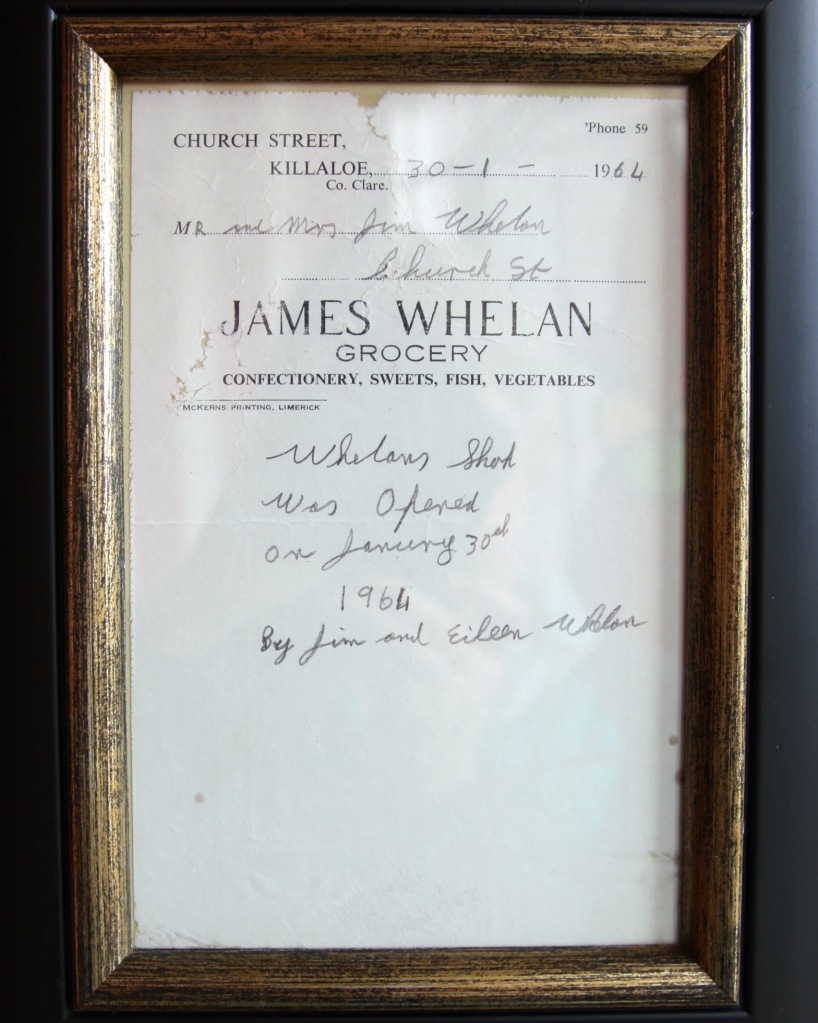 'Phone 59
CHURCH STREET,
KILLALOE, 30 - 1 - 1964
Co. Clare.
MR and Mrs Jim Whelan
Church St
JAMES WHELAN
GROCERY
CONFECTIONERY, SWEETS, FISH, VEGETABLES
McKERNS PRINTING, LIMERICK
Whelans Shop
Was Opened
on Januery 30th
1964
By Jim and Eileen Whelan